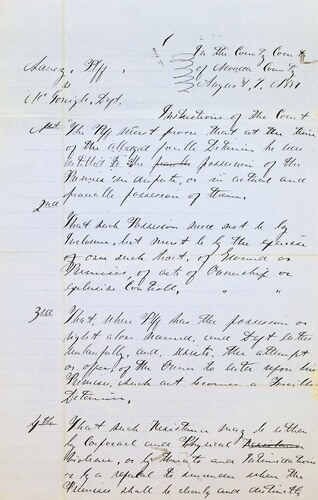 In the County Court
of Macon County
August T. 1881
Pff
vs
Mc Gonigle, Deft.
Instructions of the Court
1st The Pff must prove that at the time
of the alleged forcible Detainer he was
entitled to the possession of the
Premises in dispute, or in actual and
peaceable possession of them.
2nd
That such Possession need not be by
Inclosure, but must be by the exercise
of over such tract, of Ground or
Premises, of acts of Ownership or
exclusive Controll,
3rd That, when Pff has the possession or
right above named, and Deft enters
unlawfully, and, resists, the attempt
or offer, of the Owner to enter upon his
Premises, such act becomes a Forcible
Detainer,
4th That such Resistance may be either
by Corporeal and Physical Resistance
violence, or by threats and Intimidations
or by a refusal to surrender when the
Premises shall be clearly and distinctly